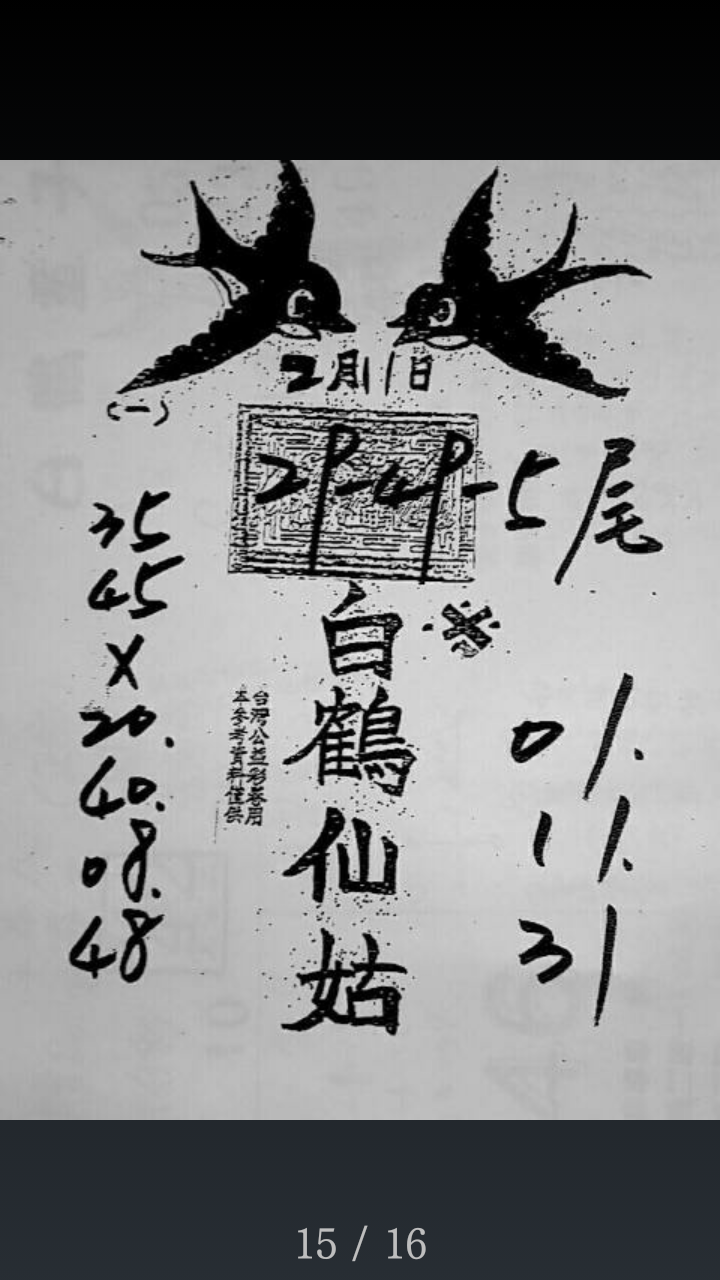 2月11日
(一)
29-49-5尾
35
45
X
20.
40.
08.
48
白鶴仙姑
台灣公益彩券用
本參考資料僅供
01.
11.
31
15 / 16